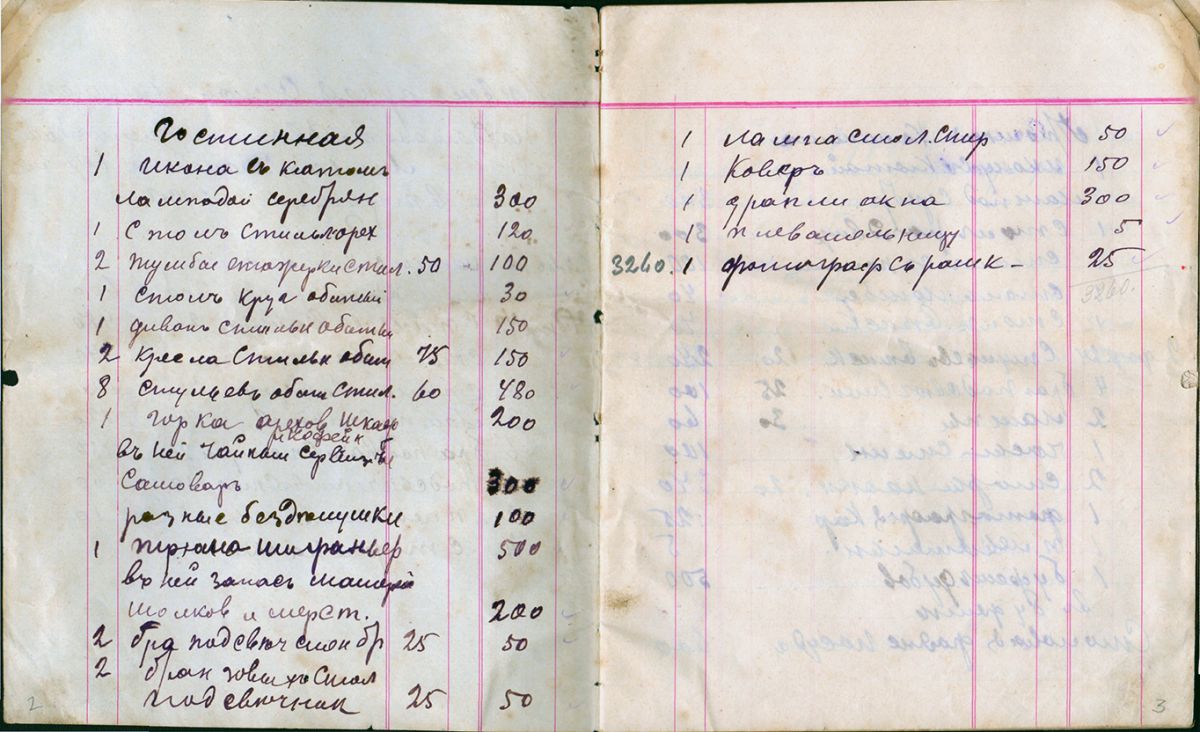 Гостинная
1 икона съ киотомъ
лампадой серебрян 300
1 Столъ стильн орех 120
2 тумбы етажерки стил. 50 100
1 столъ круг обитый 30
1 диванъ стильн обитый 150
2 кресла стильн обит 75 150
8 стульевъ обит стил. 60 480
1 горка орехов шкафъ 200
и кофейн
въ ней чайный сервизъ
Самоваръ 300
разные бездюлушки 100
1 шифраньер 500
въ ней запасъ матерiй
шолков и шерст. 200
2 бра подсвеч стен бр 25 50
2 брон стол
подсвечник 25 50
2
1 лампа стол. 50
1 Коверъ 150
1 драпи окна 300
1 плевательницу 5
3260. 1 фотограф съ рамк 25
3260.
3